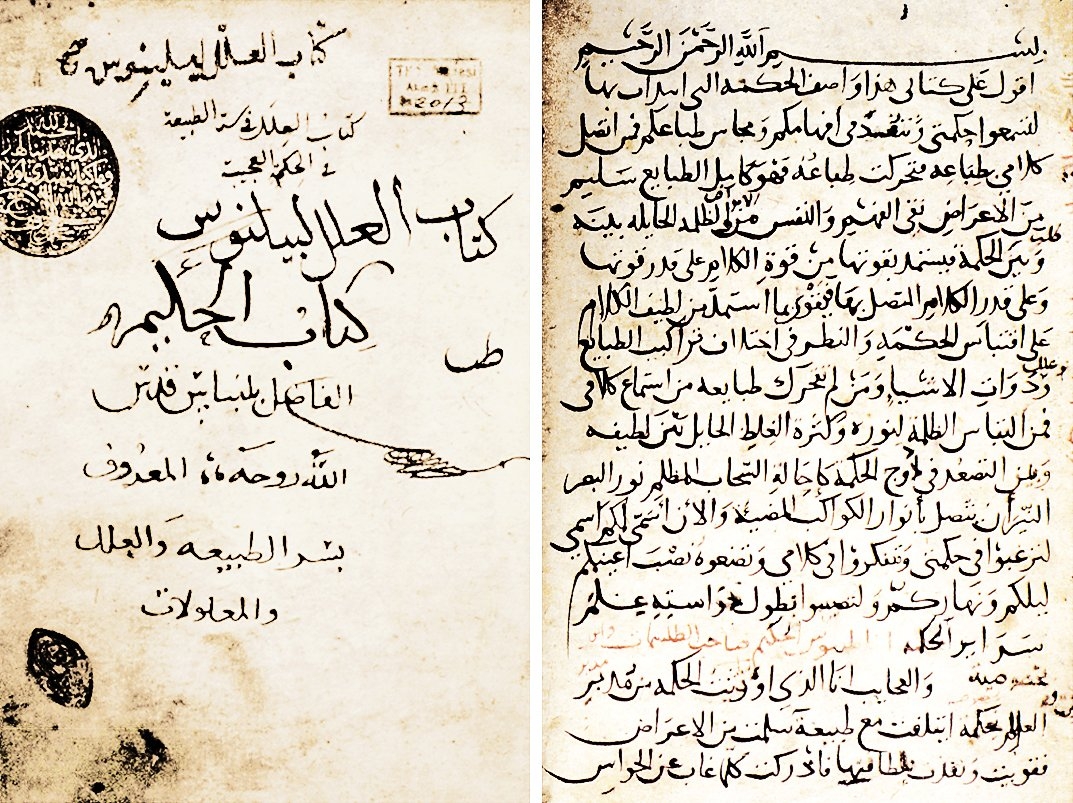 كتاب العلل لبلينوس
2013
كتاب العلل في سر الطبيعة
في الحكم العجيبة
كتاب العلل لبيلنوس
كتاب الحكيم
الفاضل قدس
الله روحه المعروف
بسر الطبيعه والعلل
والمعلولات
بسم الله الرحمن الرحيم
اقول على كتابي هذا واصف الحكمه التي بها
لتسمعوا حكمتي في افهامكم طباعكم فمن اتصل
كلامي بطباعه فتحركت طباعه فهو كامل الطبايع سليم
من الاعراض نقي والنفس من الظلمه الحايله بينه
وبين الحكمة فيستمد بقوتها من قوة الكلام على قدر قوتها
وعلى قدر الكلام المتصل بها فيقوى بما استمد من لطيف الكلام
على اقتباس الحكمة والنظر في تراكيب الطبايع
وعلل
وذوات الاشيا ومن لم تتحرك طبايعه من استماع كلامي
فمن التباس الظلمة لنوره وكثرة الغلظ الحايل بين لطيفه
وبين التصعد في اوج الحكمة السحاب المظلم نور البصر
ان يتصل بأنوار الكواكب المضيئة والان اسمي لكم اسمي
لترغبوا في حكمتي وتتفكروا في كلامي وتضعوه نصب اعينكم
ليلكم ونهاركم بطول دراسته علم
الحكمه الحكيم صاحب الطلسمات
والعجايب انا الذي اوتيت الحكمة من مدبر
العالم بحكمة مع طبيعة سلمت من الاعراض
فقويت ونفذت فادركت كلما غاب عن الحواس